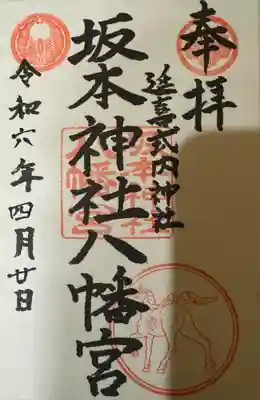 奉拝
延喜式内神社
坂本神社八幡宮
令和六年四月廿日